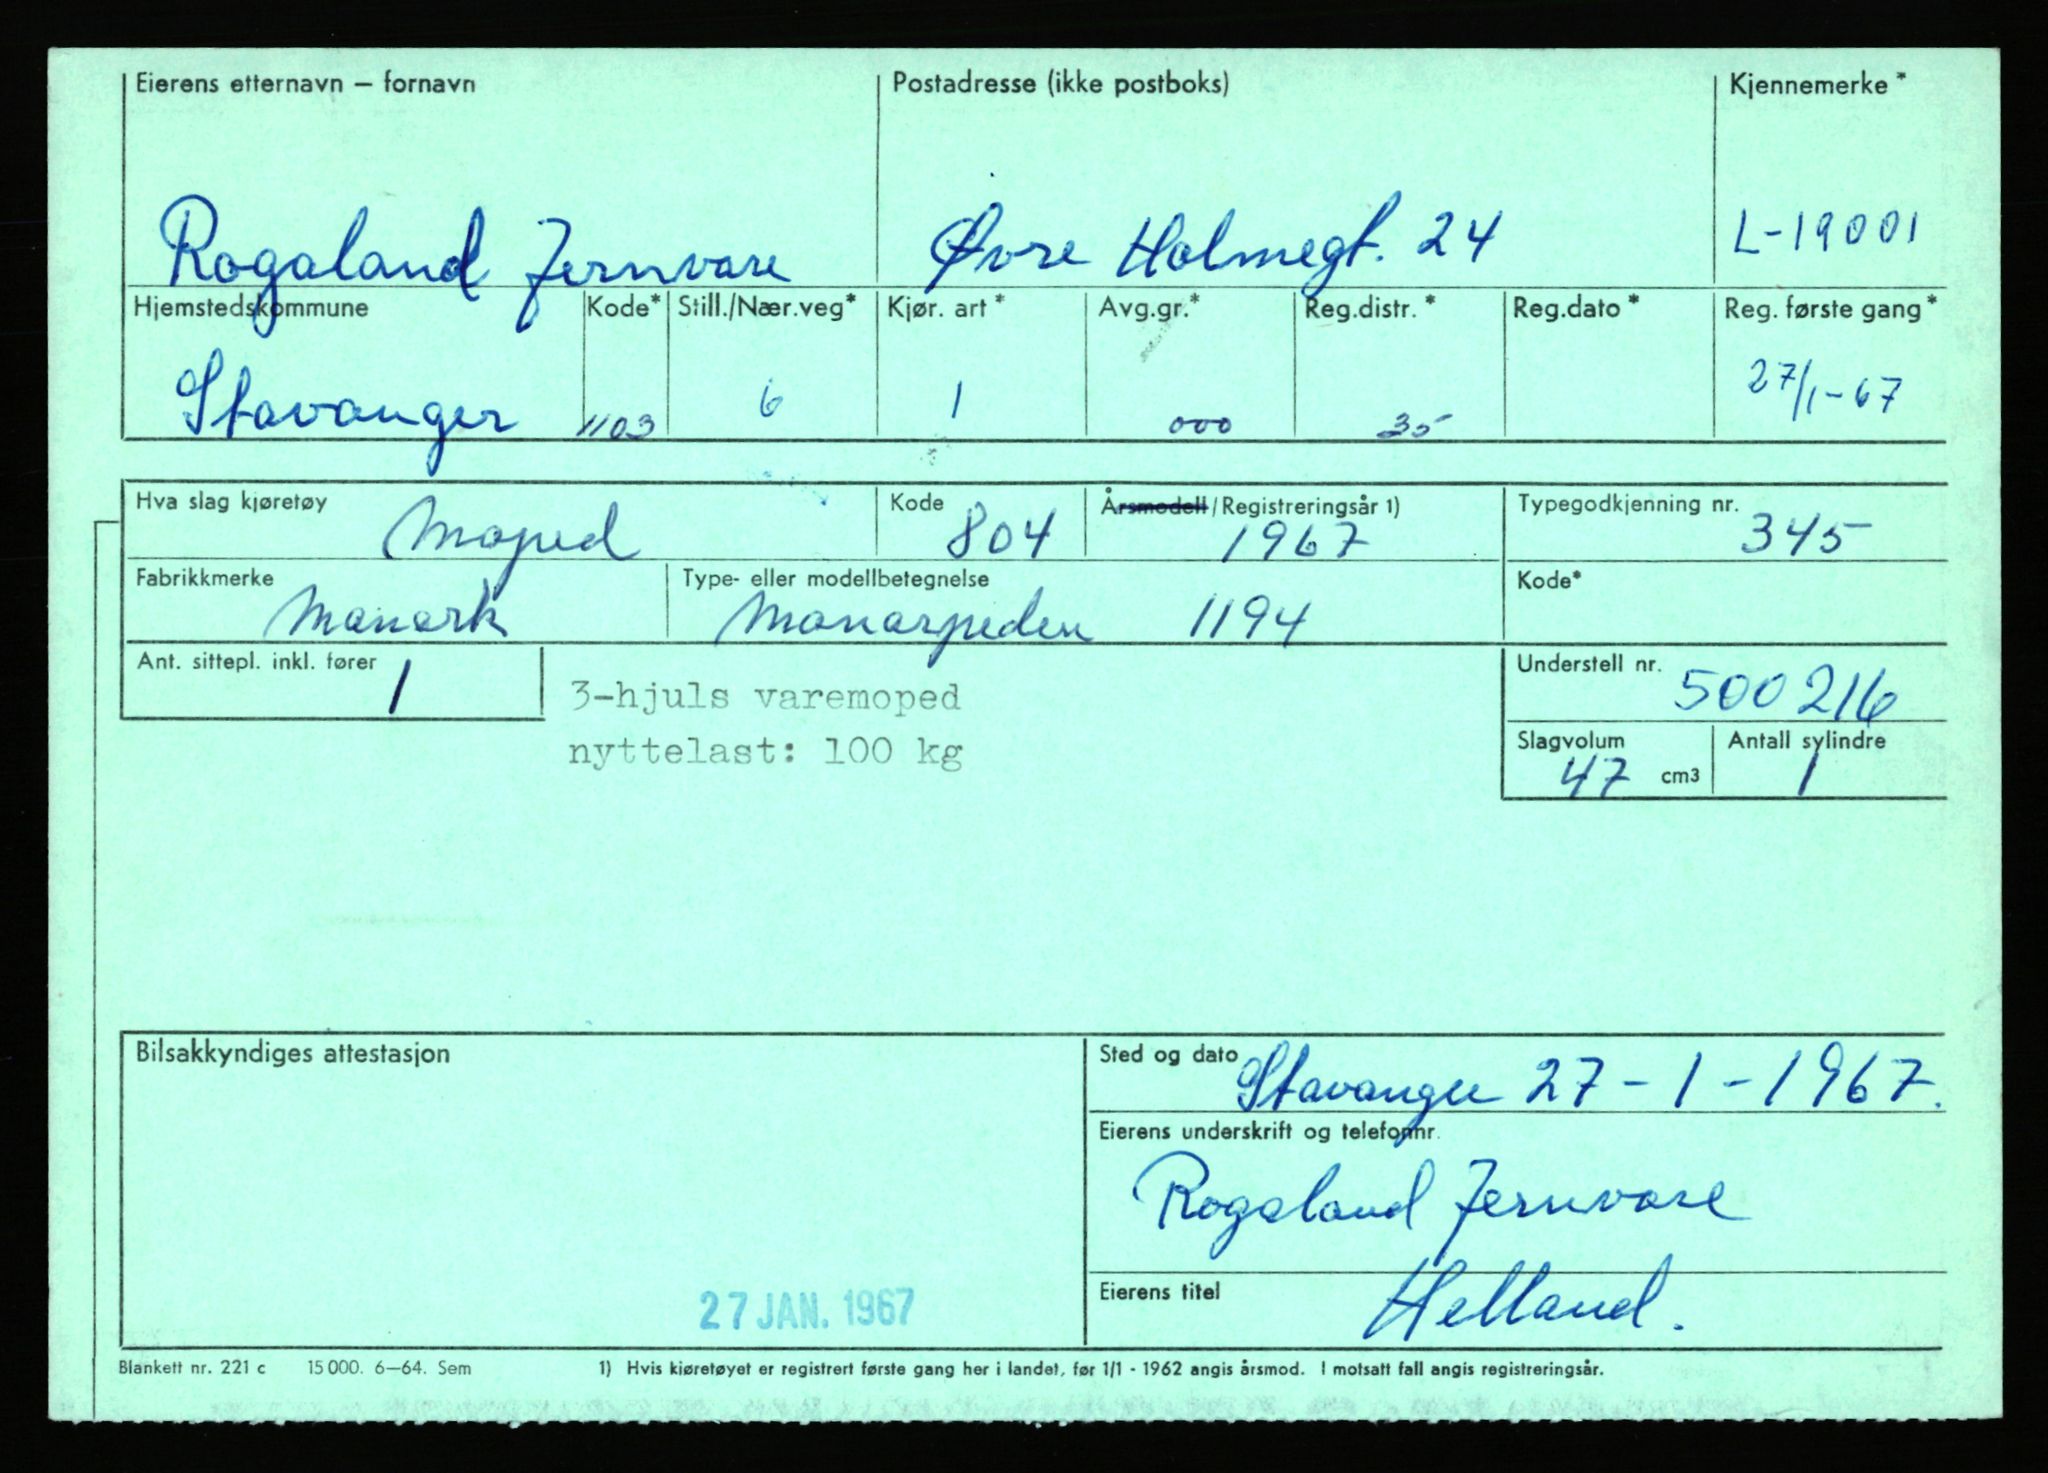 Eierens etternavn – fornavn Postadresse (ikke postboks) Kjennemerke*
Rogaland Jernvare Øvre Holmegt. 24 L-19001
Hjemstedskommune Kode* Still./Nær.veg* Kjør. art* Avg.gr.* Reg.distr.* Reg.dato* Reg. første gang*
Stavanger 1103 6 1 000 35 27/1-67
Hva slag kjøretøy Kode Årsmodell/Registreringsår 1) Typegodkjenning nr.
Moped 804 1967 345
Fabrikkmerke Type- eller modellbetegnelse Kode*
Monark Monarpeden 1194
Ant. sittepl. inkl. fører 1 Understell nr. 500216
3-hjuls varemoped
nyttelast: 100 kg
Slagvolum Antall sylindre
47 cm3 1
Bilsakkyndiges attestasjon Sted og dato
Stavanger 27-1-1967.
Eierens underskrift og telefonnr.
Rogaland Jernvare
Eierens titel Helland.
27 JAN. 1967
Blankett nr. 221 c 15 000. 6–64. Sem 1) Hvis kjøretøyet er registrert første gang her i landet, før 1/1 - 1962 angis årsmod. I motsatt fall angis registreringsår.